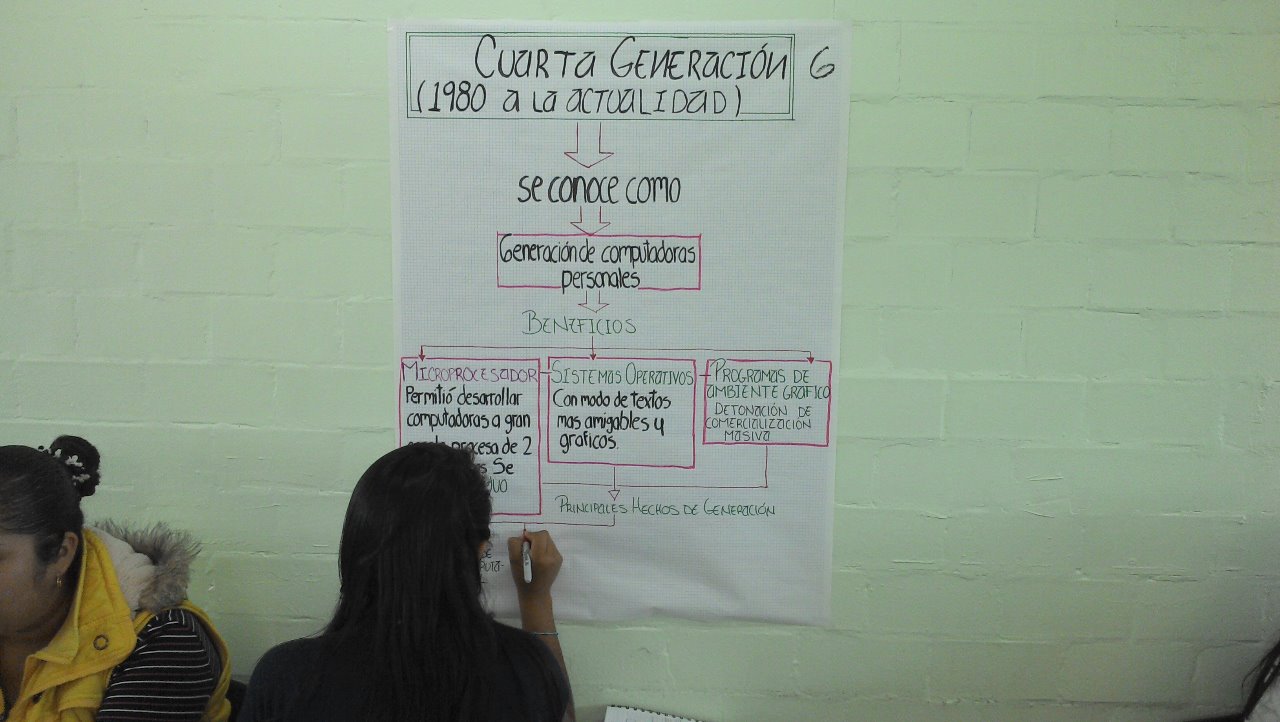 Cuarta Generación 6
(1980 a la actualidad)
se conoce como
Generación de computadoras
personales
Beneficios
Microprocesador
Permitió desarrollar
computadoras a gran
procesa de 2
Se
Sistemas Operativos
Con modo de textos
mas amigables y
graficos.
Programas de
ambiente grafico
Detonación de
comercialización
masiva
Principales Hechos de Generación